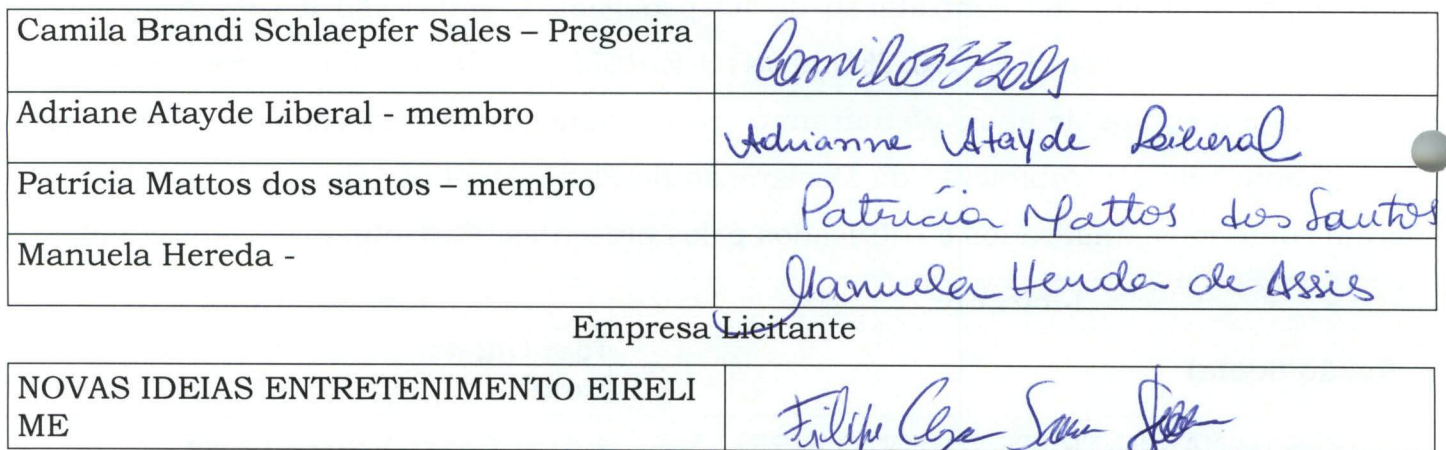 Camila Brandi Schlaepfer Sales – Pregoeira
CamilaBSSales
Adriane Atayde Liberal - membro
Adrianne Atayde Liberal
Patrícia Mattos dos santos – membro
Patrícia Mattos dos Santos
Manuela Hereda -
Manuela Hereda de Assis
Empresa Licitante
NOVAS IDEIAS ENTRETENIMENTO EIRELI
ME
Filipe